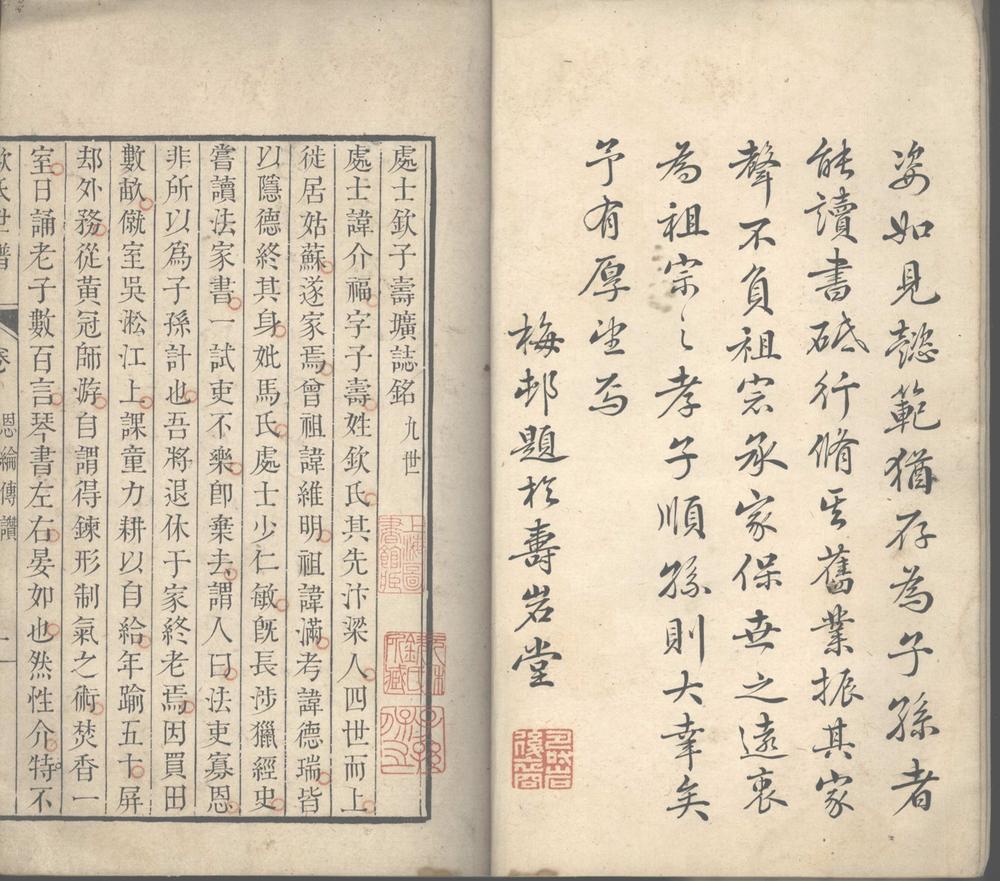 姿如見懿範猶存為子孫者
能讀書砥行脩其舊業振其家
聲不負祖宗承家保世之遠衷
為祖宗之孝子順孫則大幸矣
予有厚望焉
梅邨題於壽岩堂
處士欽子壽壙誌銘九世
處士諱介福字子壽姓欽氏其先汴梁人四世而上
徙居姑蘇遂家焉曾祖諱維明祖諱滿考諱德瑞皆
以隱德終其身妣馬氏處士少仁敏旣長涉獵經史
嘗讀法家書一試吏不樂卽棄去謂人曰法吏寡恩
非所以為子孫計也吾將退休于家終老焉因買田
數畝僦室吳淞江上課童力耕以自給年踰五十屏
却外務從黃冠師游自謂得鍊形制氣之術焚香一
室日誦老子數百言琴書左右晏如也然性介特不
欽氏世譜 卷 恩綸傳讚 一
上海圖書館藏